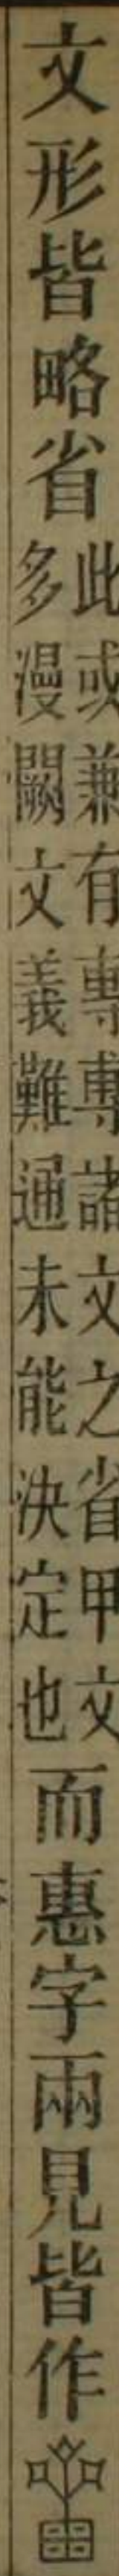 文形皆略省
此或兼有叀專諸文之省甲文
多漫闕文義難通未能決定也
而惠字兩見皆作